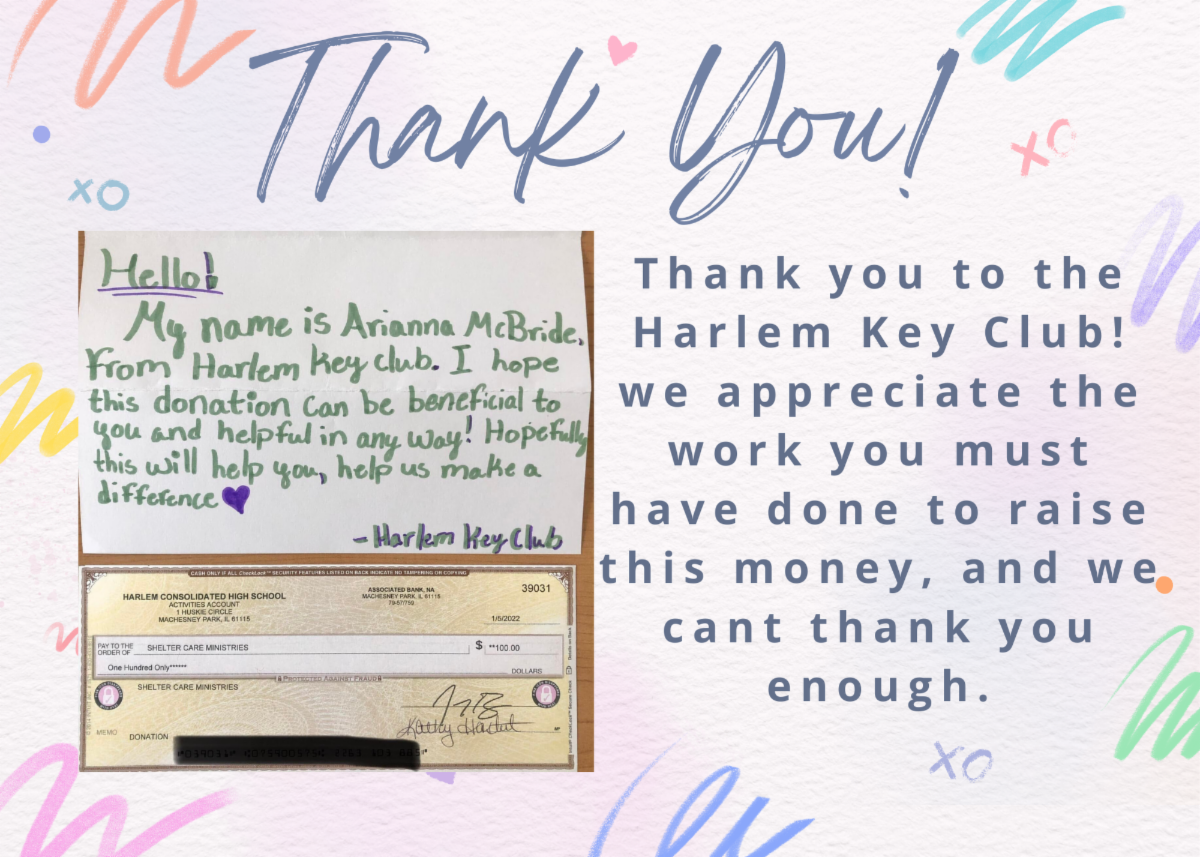 Thank You!
XO
XO
Hello!
My name is Arianna McBride,
From Harlem Key Club. I hope
this donation can be beneficial to
you and helpful in any way! Hopefully
this will help you, help us make a
difference
- Harlem Key Club
Thank you to the
Harlem Key Club!
we appreciate the
work you must
have done to raise
this money, and we
cant thank you
enough.
CASH ONLY IF ALL CheckLock™ SECURITY FEATURES LISTED ON BACK INDICATE NO TAMPERING OR COPYING
HARLEM CONSOLIDATED HIGH SCHOOL
ACTIVITIES ACCOUNT
1 HUSKIE CIRCLE
MACHESNEY PARK, IL 61115
ASSOCIATED BANK, NA
MACHESNEY PARK, IL 61115
39031
1/5/2022
PAY TO THE
ORDER OF
SHELTER CARE MINISTRIES
$ **100.00
One Hundred Only******
DOLLARS
PROTECTED AGAINST FRAUD
SHELTER CARE MINISTRIES
MEMO
DONATION
XO